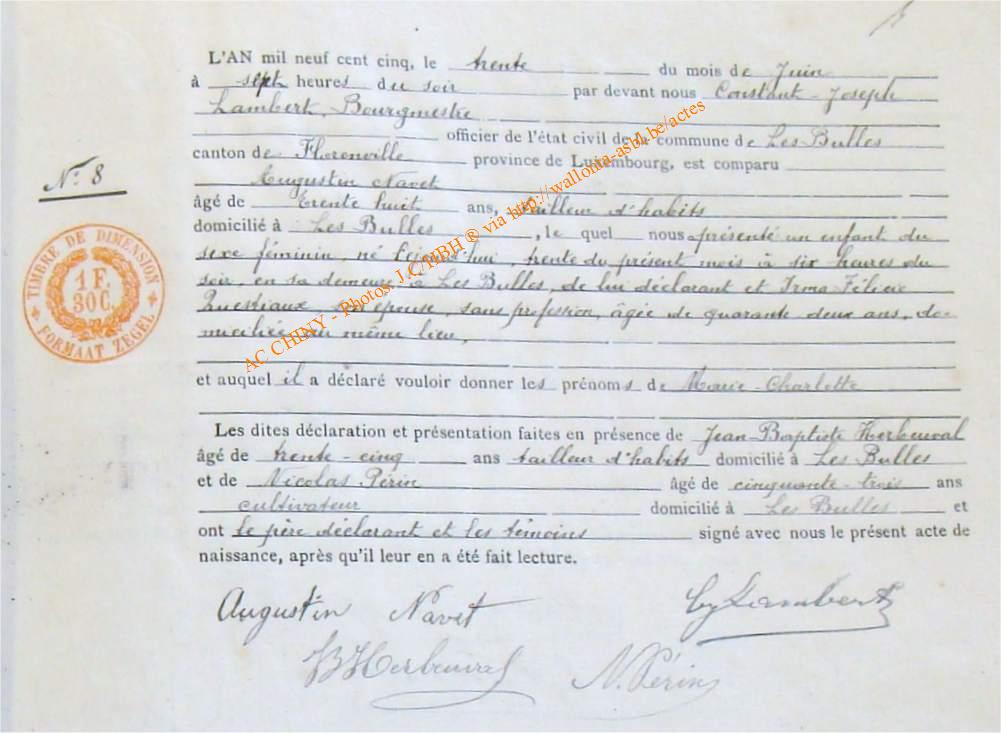 L'AN mil neuf cent cinq, le trente du mois de Juin
à sept heures du soir par devant nous Constant-Joseph
Lambert, Bourgmestre
officier de l'état civil de la commune de Les Bulles
canton de Florenville province de Luxembourg, est comparu
Augustin Navet
N° 8
âgé de Trente huit ans, tailleur d'habits
domicilié à Les Bulles, le quel nous présenté un enfant du
sexe féminin, né cejourd'hui, trente du présent mois à six heures du
soir, en sa demeure à Les Bulles, de lui déclarant et Irma Félicie
Questiaux son épouse, sans profession, âgée de quarante deux ans, do-
miciliée au même lieu,
et auquel il a déclaré vouloir donner les prénoms de Marie-Charlotte
Les dites déclaration et présentation faites en présence de Jean-Baptiste Herbeuval
âgé de trente-cinq ans tailleur d'habits domicilié à Les Bulles
et de Nicolas Périn âgé de cinquante-trois ans
cultivateur domicilié à Les Bulles et
ont le père déclarant et les témoins signé avec nous le présent acte de
naissance, après qu'il leur en a été fait lecture.
Augustin Navet
Lambert
JB Herbeuval
N. Périn
TIMBRE DE DIMENSION
1 F.
30 C.
FORMAAT ZEGEL
AC CHINY - Photos: J.C. HBH ® via http://wallonia-asbl.be/actes